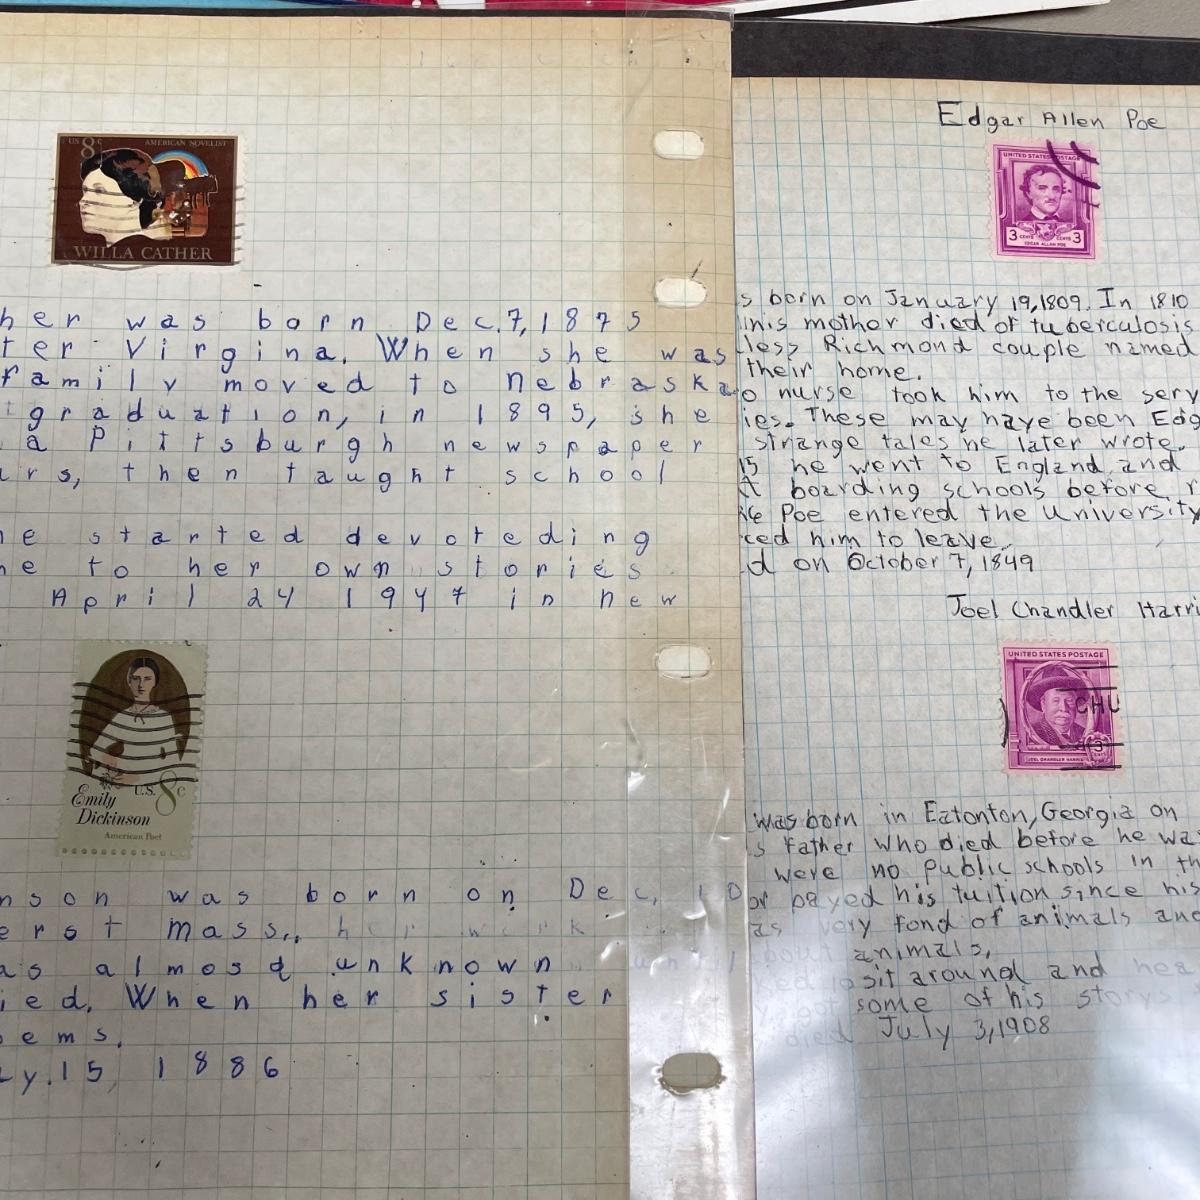 US 8c AMERICAN NOVELIST
WILLA CATHER
her was born Dec. 7, 1875
ter Virgina. When she was
family moved to nebraska
graduation, in 1895, she
a Pittsburgh newspaper
urs, then taught school
he started devoteding
ne to her own stories
April 24 1947 in new
Emily U.S. 8c
Dickinson
American Poet
nson was born on Dec, 10
erst mass., her work
as almosd unknown until
ied. When her sister
oems.
y. 15 1886
Edgar Allen Poe
UNITED STATES POSTAGE
3 CENTS CENTS 3
EDGAR ALLAN POE
s born on January 19, 1809. In 1810
his mother died of tuberculosis
less Richmond couple named
their home.
o nurse took him to the serv
ies. These may have been Edg
strange tales he later wrote.
15 he went to England, and
t boarding schools before r
ke Poe entered the University
ced him to leave.
d on October 7, 1849
Joel Chandler Harri
UNITED STATES POSTAGE
CHU
3
CENTS
JOEL CHANDLER HARRIS
was born in Eatonton, Georgia on
s father who died before he was
were no public schools in th
or payed his tuition since his
as very fond of animals and
about animals.
ked to sit around and hea
y got some of his storys
died July 3, 1908